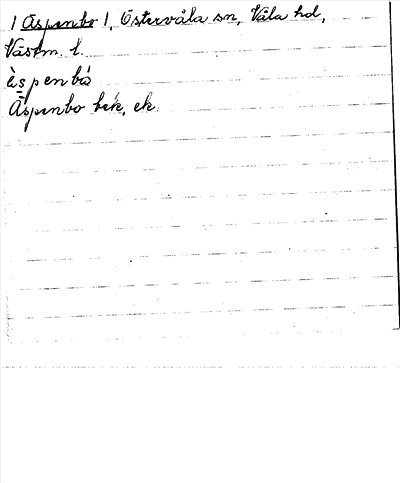 1 Äspenbo 1, Östervåla sn, Våla hd,
Västm. l.
èspenbò
Äspenbo bek, ek.